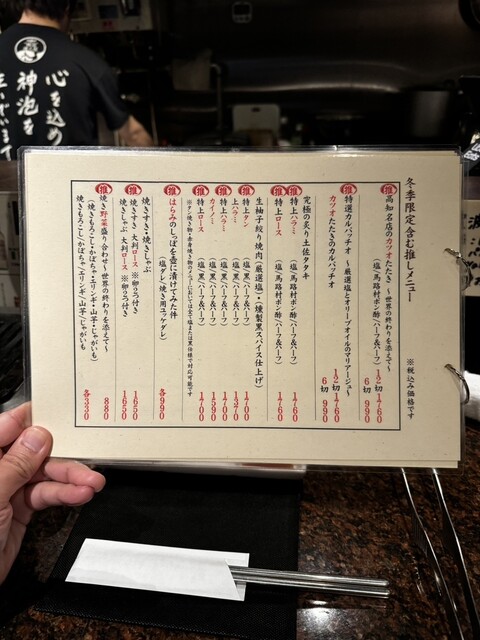 冬季限定含む推しメニュー
※税込み価格です
推 高知名店のカツオたたき ~世界の終わりを添えて~
(塩/馬路村ポン酢/ハーフ&ハーフ)
12切 1760
6切 990
推 特選カルパッチオ ~厳選塩とオリーブオイルのマリアージュ~
カツオたたきのカルパッチオ
12切 1760
6切 990
究極の炙り土佐タタキ
推 特上ハラミ (塩/馬路村ポン酢/ハーフ&ハーフ) 1760
推 特上ロース (塩/馬路村ポン酢/ハーフ&ハーフ) 1760
生柚子絞り焼肉(厳選塩)・(燻製黒スパイス仕上げ)
推 特上タン (塩/黒/ハーフ&ハーフ) 1700
推 上ハラミ (塩/黒/ハーフ&ハーフ) 1370
推 特上ハラミ (塩/黒/ハーフ&ハーフ) 1700
推 カイノミ (塩/黒/ハーフ&ハーフ) 1590
推 特上ロース (塩/黒/ハーフ&ハーフ) 1700
推 はらみのしっぽを壺に漬けてみた件
(塩ダレ・焼き用ユッケダレ) 各990
焼きすき・焼きしゃぶ
推 焼きすき 大判ロース ※卵2つ付き 1650
焼きしゃぶ 大判ロース ※卵2つ付き 1650
推 焼き野菜盛り合わせ~世界の終わりを添えて~ 880
(焼きもろこし・かぼちゃ・エリンギ・山芋・じゃがいも)
焼きもろこし/かぼちゃ/エリンギ/山芋/じゃがいも 各330
心を込め
神池を